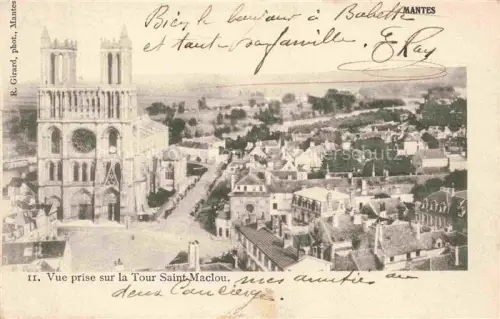 MANTES
R. Girard, phot., Mantes
Bien le bonjour à Babette
et toute sa famille
E Ray
11. Vue prise sur la Tour Saint-Maclou.
mes amitiés au
deux Concierge